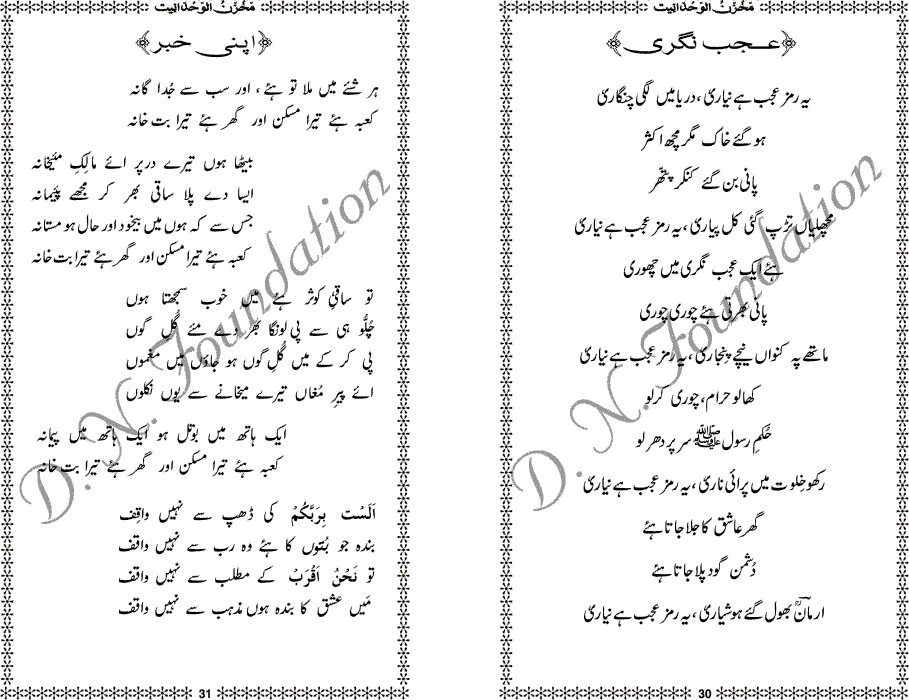 مَخْزَنُ الوَحْدَانِیَت
﴿عجب نگری﴾
یہ رمز عجب ہے نیاری ، دریا میں لگی چنگاری
ہو گئے خاک مگر مچھ اکثر
پانی بن گئے کنکر پتھر
مچھلیاں تڑپ گئی کل پیاری ، یہ رمز عجب ہے نیاری
ہئے ایک عجب نگری میں چھوری
پانی بھرتی ہئے چوری چوری
ماتھے پہ کنواں نیچے پنجاری ، یہ رمز عجب ہے نیاری
کھالو حرام ، چوری کرلو
حُکمِ رسول ﷺ سر پر دھر لو
رکھو خلوت میں پرائی ناری ، یہ رمز عجب ہے نیاری
گھر عاشق کا جلا جاتا ہئے
دُشمن گود پلا جاتا ہئے
ارمانؔ بھول گئے ہوشیاری ، یہ رمز عجب ہے نیاری
30
مَخْزَنُ الوَحْدَانِیَت
﴿اپنی خبر﴾
ہر شئے میں ملا تو ہئے ، اور سب سے جُدا گانہ
کعبہ ہئے تیرا مسکن اور گھر ہئے تیرا بت خانہ
بیٹھا ہوں تیرے در پر ائے مالِکِ مئیخانہ
ایسا دے پلا ساقی بھر کر مجھے پئیمانہ
جس سے کہ ہوں میں بیخود اور حال ہو مستانہ
کعبہ ہئے تیرا مسکن اور گھر ہئے تیرا بت خانہ
تو ساقیِ کوثر ہئے میں خوب سمجھتا ہوں
چُلّو ہی سے پی لونگا بھر دے مئے گُل گوں
پی کر کے میں گُل گوں ہو جاؤں میں مغموں
ائے پیرِ مُغاں تیرے میخانے سے یوں نکلوں
ایک ہاتھ میں بوتل ہو ایک ہاتھ میں پیمانہ
کعبہ ہئے تیرا مسکن اور گھر ہئے تیرا بت خانہ
اَلَسْت بِرَبِّکُمْ کی ڈھپ سے نہیں واقِف
بندہ جو بُتوں کا ہئے وہ رب سے نہیں واقف
تو نَحْنُ اَقْرَبْ کے مطلب سے نہیں واقف
مَیں عشق کا بندہ ہوں مذہب سے نہیں واقف
31
D. N. Foundation
D. N. Foundation